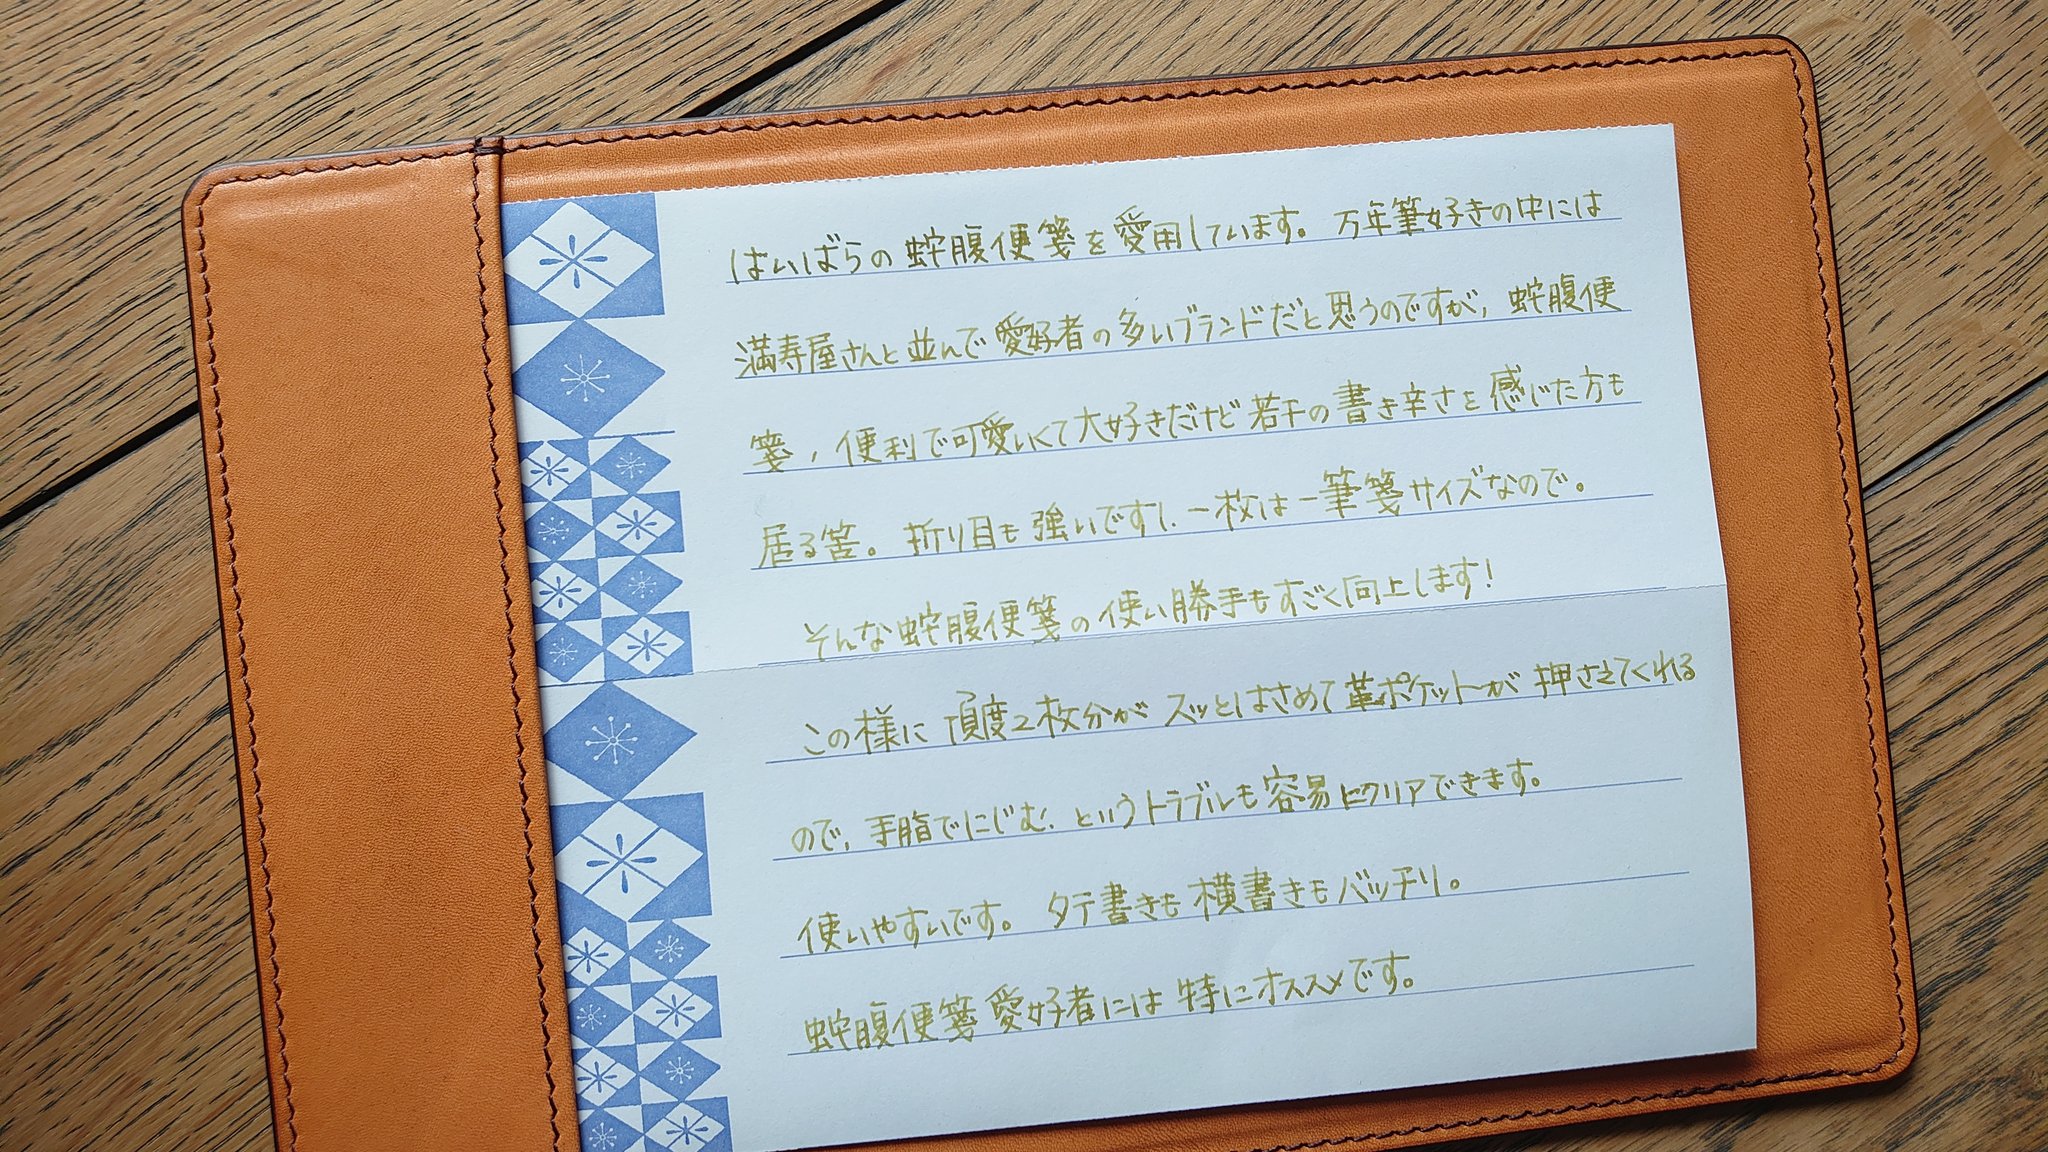 はいばらの蛇腹便箋を愛用しています。万年筆好きの中には
満寿屋さんと並んで愛好者の多いブランドだと思うのですが、蛇腹便
箋、便利で可愛いくて大好きだけど若干の書き辛さを感じた方も
居る筈。折り目も強いですし、一枚は一筆箋サイズなので。
そんな蛇腹便箋の使い勝手もすごく向上します!
この様に頂度2枚分がスッとはさめて革ポケットが押さえてくれる
ので、手脂でにじむ、というトラブルも容易にクリアできます。
使いやすいです。タテ書きも横書きもバッチリ。
蛇腹便箋愛好者には特にオススメです。